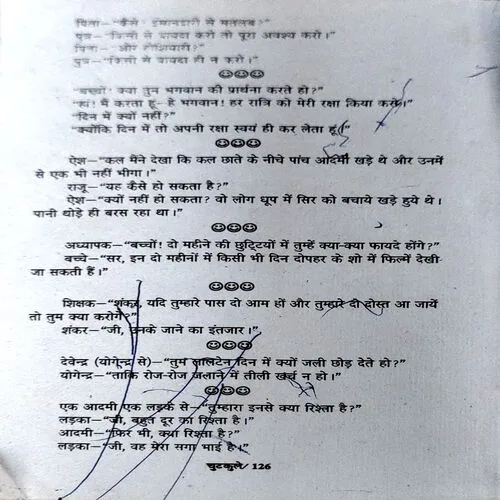 पिता—"कैसे? ईमानदारी से मतलब?"
पुत्र—"किसी से वायदा करो तो पूरा अवश्य करो।"
पिता—"और होशियारी?"
पुत्र—"किसी से वायदा ही न करो।"
"बच्चों! क्या तुम भगवान की प्रार्थना करते हो?"
"हां! मैं करता हूं—हे भगवान! हर रात्रि को मेरी रक्षा किया करो।"
"दिन में क्यों नहीं?"
"क्योंकि दिन में तो अपनी रक्षा स्वयं ही कर लेता हूं।"
ऐश—"कल मैंने देखा कि कल छाते के नीचे पांच आदमी खड़े थे और उनमें
से एक भी नहीं भीगा।"
राजू—"यह कैसे हो सकता है?"
ऐश—"क्यों नहीं हो सकता? वो लोग धूप में सिर को बचाये खड़े हुये थे।
पानी थोड़े ही बरस रहा था।"
अध्यापक—"बच्चों! दो महीने की छुट्टियों में तुम्हें क्या-क्या फायदे होंगे?"
बच्चे—"सर, इन दो महीनों में किसी भी दिन दोपहर के शो में फिल्में देखी
जा सकती हैं।"
शिक्षक—"शंकर, यदि तुम्हारे पास दो आम हों और तुम्हारे दो दोस्त आ जायें
तो तुम क्या करोगे?"
शंकर—"जी, उनके जाने का इंतजार।"
देवेन्द्र (योगेन्द्र से)—"तुम लालटेन दिन में क्यों जली छोड़ देते हो?"
योगेन्द्र—"ताकि रोज-रोज जलाने में तीली खर्च न हो।"
एक आदमी एक लड़के से—"तुम्हारा इनसे क्या रिश्ता है?"
लड़का—"जी, बहुत दूर का रिश्ता है।"
आदमी—"फिर भी, क्या रिश्ता है?"
लड़का—"जी, वह मेरा सगा भाई है।"
चुटकुले/ 126